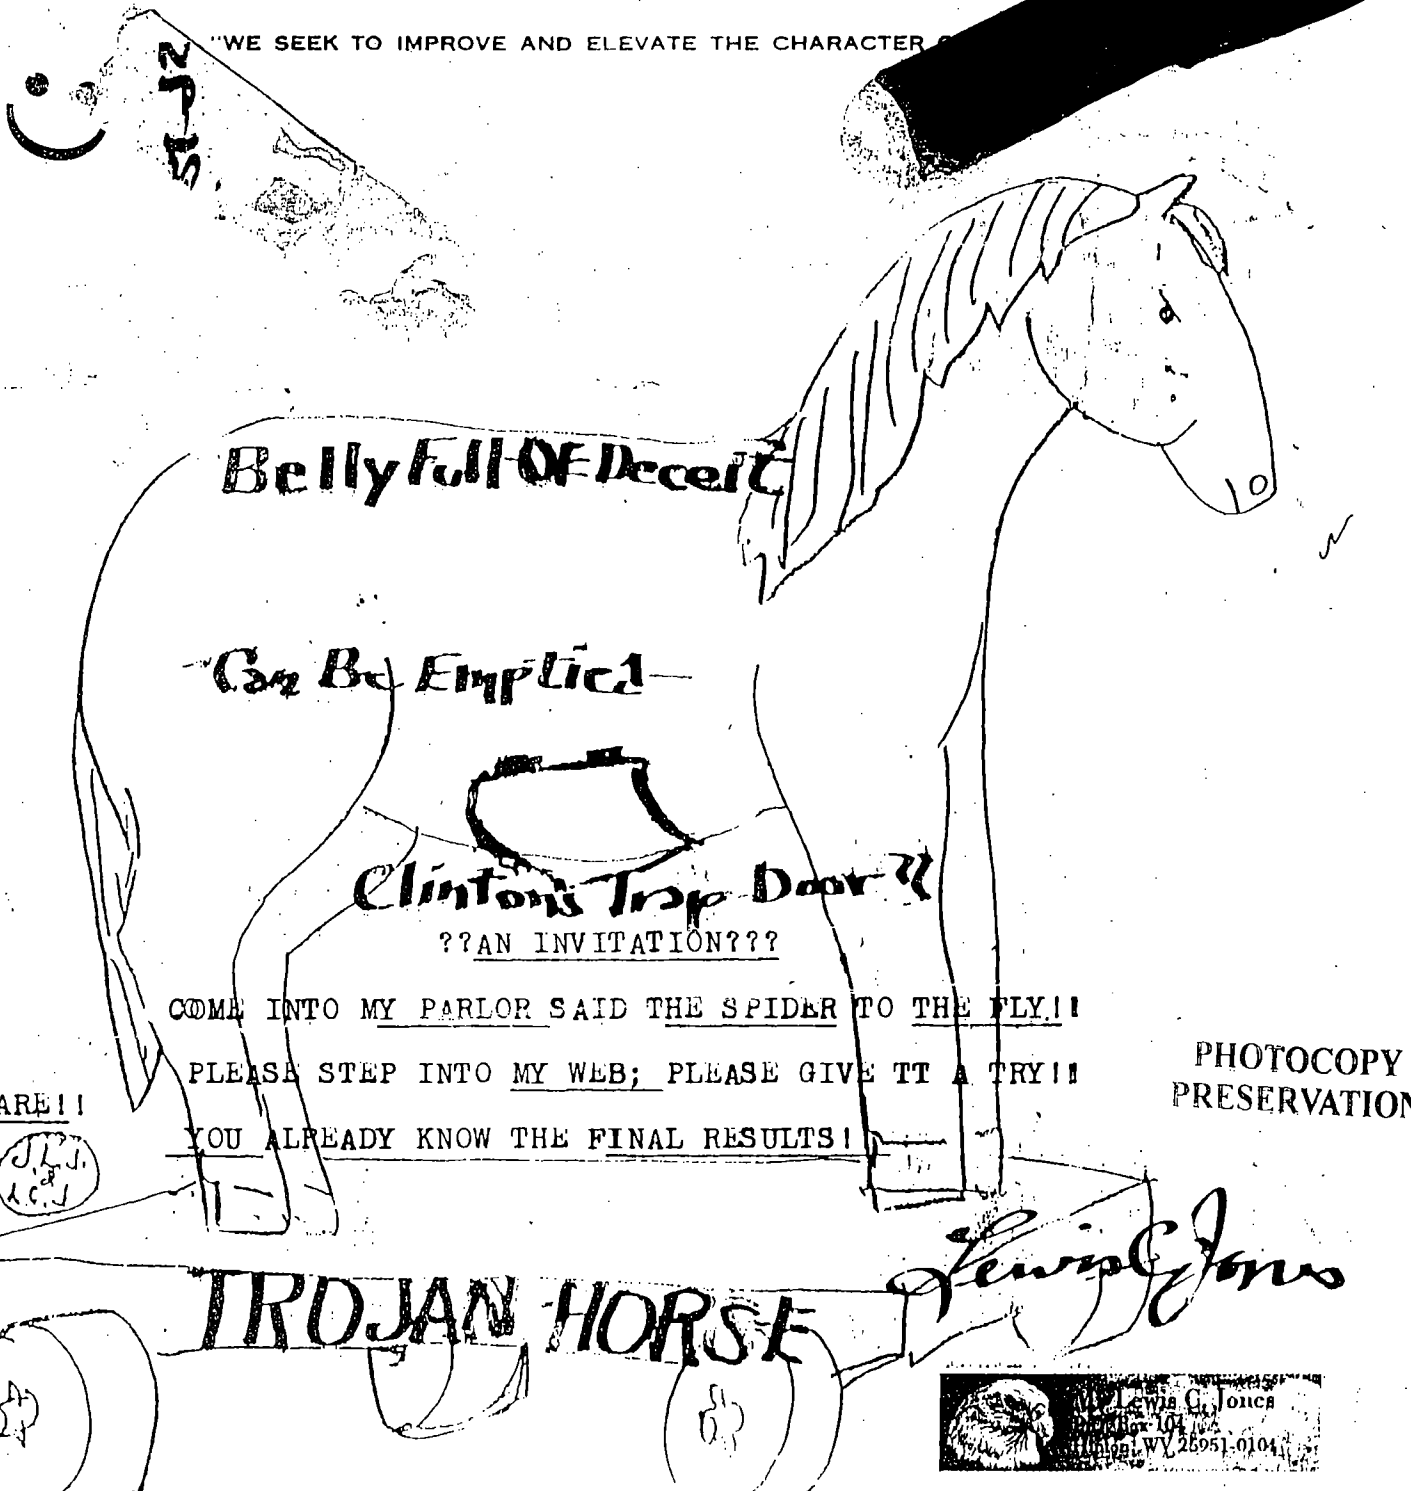 "WE SEEK TO IMPROVE AND ELEVATE THE CHARACTER
Belly Full OF Deceit
Can Be Emptied
Clinton's Trap Door??
??AN INVITATION???
COME INTO MY PARLOR SAID THE SPIDER TO THE FLY!!
PLEASE STEP INTO MY WEB; PLEASE GIVE TT A TRY!!
YOU ALREADY KNOW THE FINAL RESULTS!
ARE!!
J.L.J.
&
L.C.J
PHOTOCOPY
PRESERVATION
Lewis C. Jones
TROJAN HORSE
Mr Lewis C. Jones
Box 104
WV 25951-0104